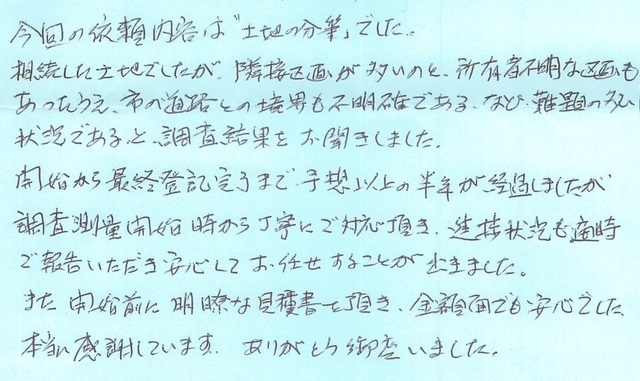 今回の依頼内容は"土地の分筆"でした。
相続した土地でしたが、隣接区画が多いのと、所有者不明な区画も
あったうえ、市の道路との境界も不明確である、など難題の多い
状況であると、調査結果をお聞きしました。
開始から最終登記完了まで、予想以上の半年が経過しましたが
調査測量開始時から丁寧にご対応頂き、進捗状況も適時
ご報告いただき安心してお任せすることが出きました。
また開始前に明瞭な見積書を頂き、金額面でも安心でした
本当に感謝しています。ありがとう御座いました。